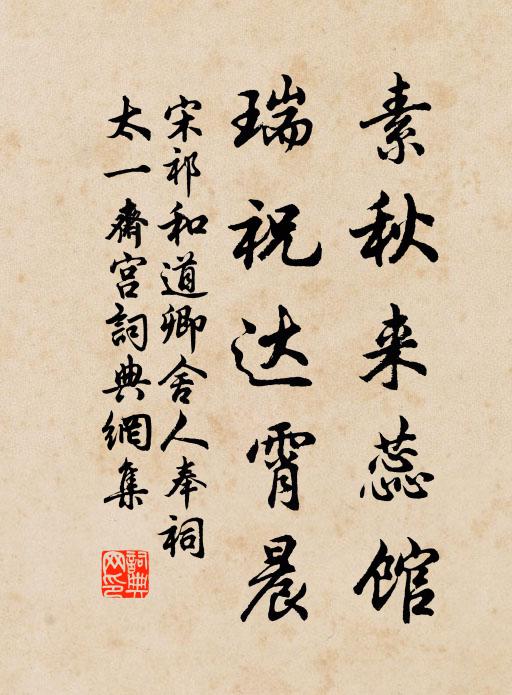 素秋来蕊馆
瑞祝达霄晨
宋祁和道卿舍人奉祠
太一齋宫詞典網集
詞典网印